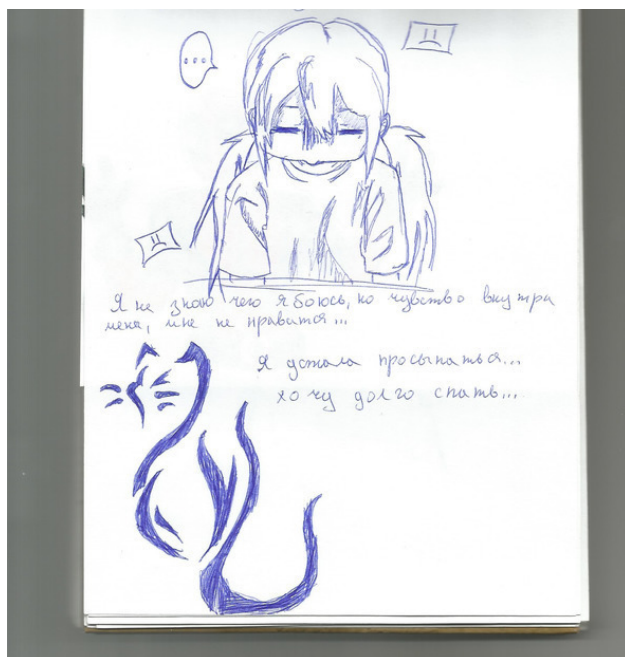 ...
Я не знаю чего я боюсь, но чувство внутра
меня, мне не нравится...
Я устала просыпаться...
хочу долго спать...